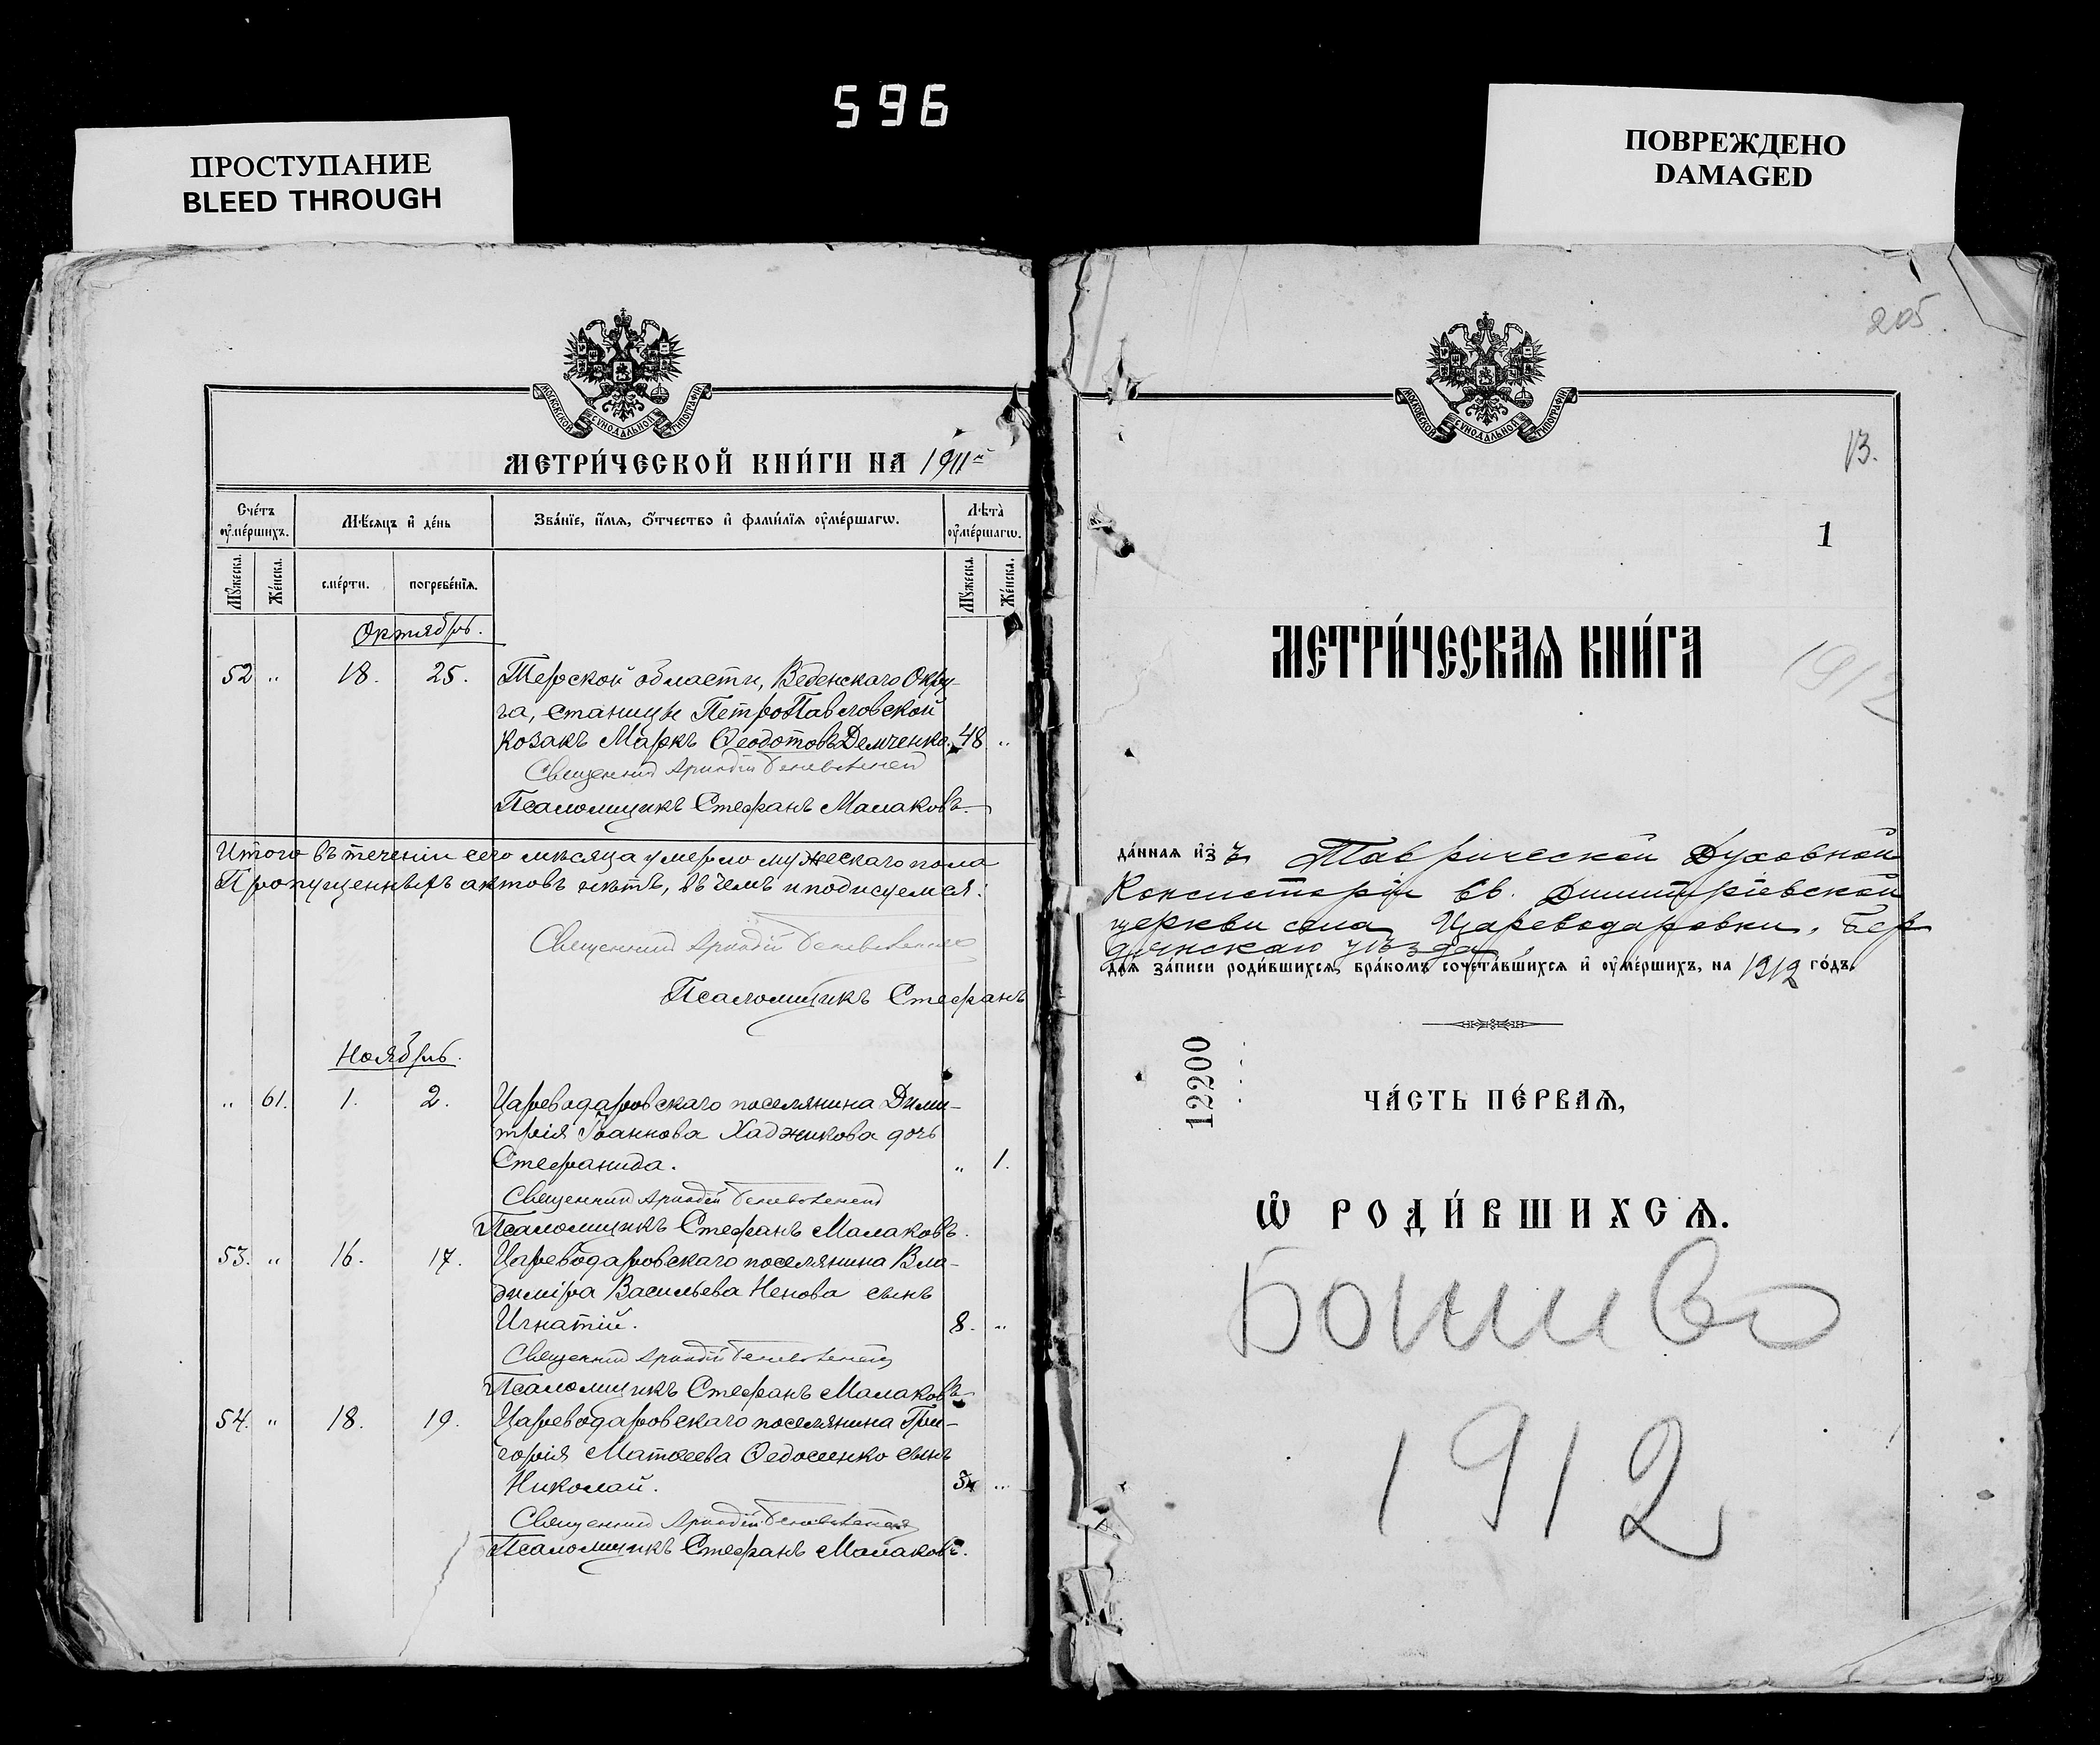 596
ПРОСТУПАНИЕ
BLEED THROUGH
ПОВРЕЖДЕНО
DAMAGED
МОСКОВСКОЙ СУНОДАЛЬНОЙ ТИПОГРАФІИ
МЕТРИ́ЧЕСКОЙ КНИ́ГИ НА 1911й
Сче́тъ ᲂу҆ме́ршихъ.
Мѣ́сяцъ и҆ де́нь
Зва́нїе, и҆́мѧ, ѻ҆́тчество и҆ фами́лїѧ ᲂу҆ме́ршагѡ.
Лѣ́та ᲂу҆ме́ршагѡ.
Мꙋ́жеска.
Же́нска.
сме́рти.
погребе́нїѧ.
Мꙋ́жеска.
Же́нска.
Октябрь.
52 " 18. 25. Терской области, Веденскаго Окру-
га, станицы ПетроПавловской
козакъ Маркъ Ѳеодотовъ Демченко. 48 "
Священник Аркадій
Псаломщикъ Стефанъ Малаковъ.
Итого въ теченіи сего мѣсяца умерло мужескаго пола
Пропущенныхъ актовъ нѣтъ, въ чемъ и подписуемся:
Священник Аркадій
Псаломщикъ Стефанъ
Ноябрь.
" 61. 1. 2. Цареводаровскаго поселянина Дими-
трія Іоаннова Хаджикова дочь
Стефанида. " 1.
Священник Аркадій
Псаломщикъ Стефанъ Малаковъ.
53. " 16. 17. Цареводаровскаго поселянина Вла-
диміра Васильева Ненова сынъ
Игнатій. 8. "
Священник Аркадій
Псаломщикъ Стефанъ Малаковъ
54. " 18. 19. Цареводаровскаго поселянина Гри-
горія Матѳеева Ѳедосенко сынъ
Николай. "
Священник Аркадій
Псаломщикъ Стефанъ Малаковъ.
205.
МОСКОВСКОЙ СУНОДАЛЬНОЙ ТИПОГРАФІИ
13.
1
МЕТРИ́ЧЕСКАѦ КНИ́ГА
1912
да́ннаѧ и҆зъ Таврической Духовной
Консисторіи въ Димитріевской
церкви села Цареводаровки, Бер
дянскаго уѣзда
длѧ за́писи роди́вшихсѧ, бра́комъ сочета́вшихсѧ и҆ ᲂу҆ме́ршихъ, на 1912 го́дъ.
12200
ЧА́СТЬ ПЕ́РВАѦ,
Ѡ҆ РОДИ́ВШИХСѦ.
1912